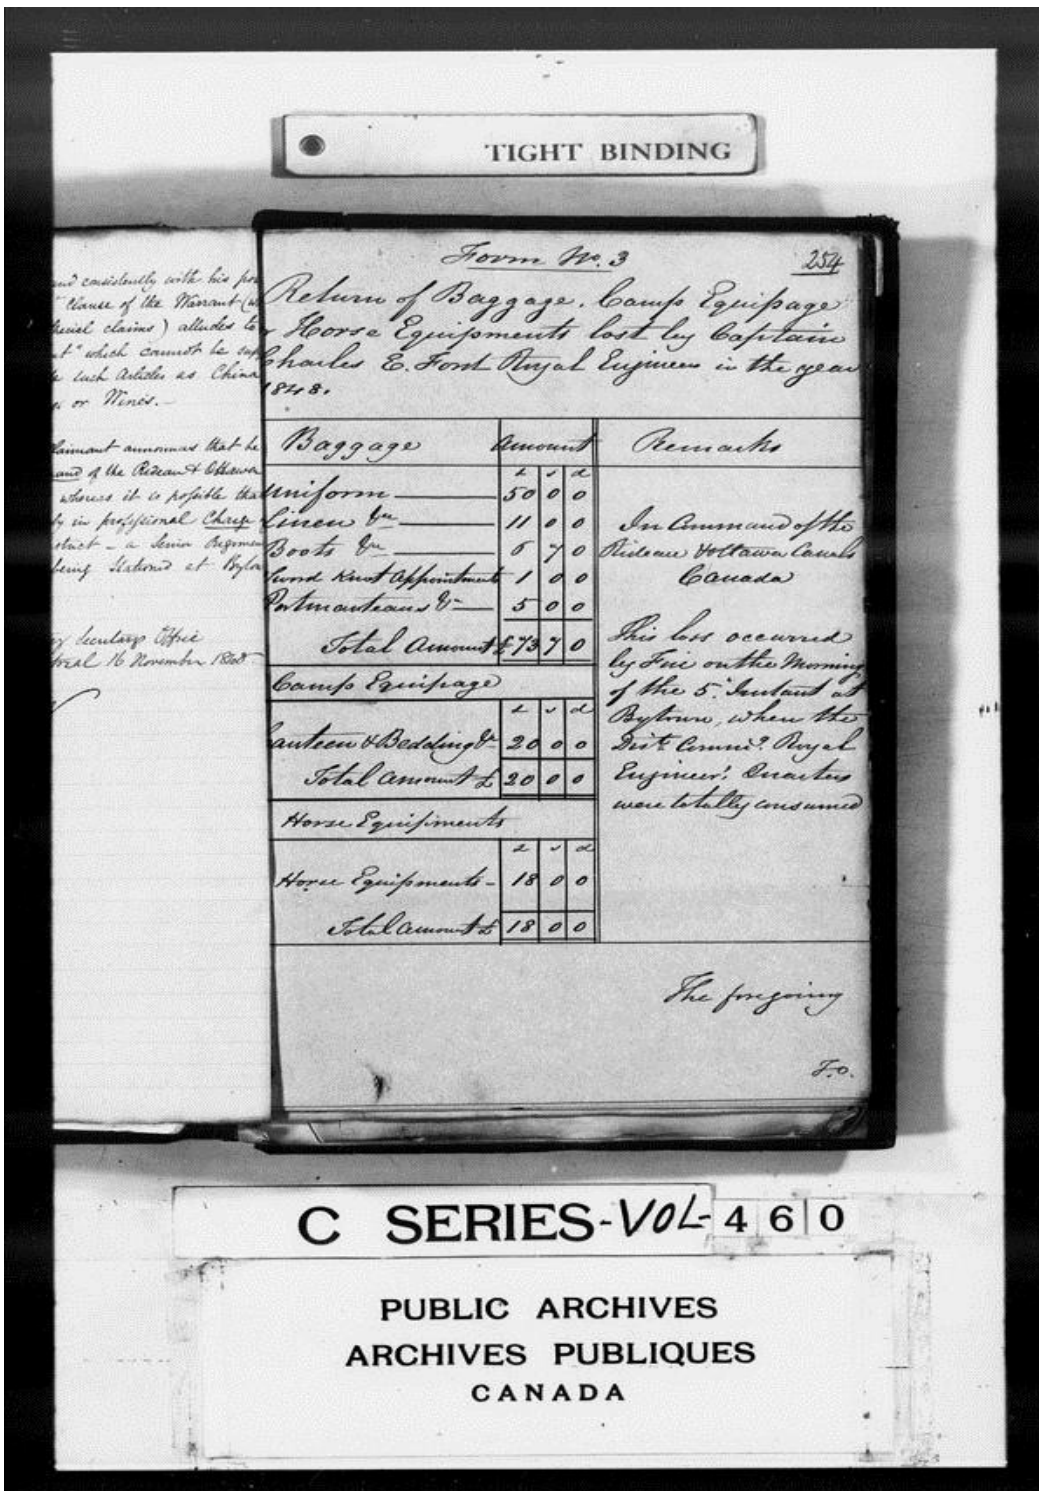 TIGHT BINDING
and consistently with his
Clause of the Warrant
claims) alludes to
which cannot be
such Articles as China
or Wines.—
announces that he
of the Rideau & Ottawa
whereas it is possible tha
in professional Charge
a Senior Regimen
being stationed at Byto
Secretary Office
16 November 1848
Form No. 3
254
Return of Baggage, Camp Equipage
Horse Equipments lost by Captain
Charles E. Ford Royal Engineers in the year
1848.
Baggage Amount Remarks
£ s d
Uniform 50 0 0
Linen &c 11 0 0
Boots &c 6 7 0
Sword Knot Appointments 1 0 0
Portmanteaus &c 5 0 0
Total Amount £ 73 7 0
In Command of the
Rideau & Ottawa Canals
Canada
This loss occurred
by Fire on the Morning
of the 5. Instant at
Bytown, when the
Dist. Comm.g Royal
Engineer's Quarters
were totally consumed
Camp Equipage
£ s d
Canteen & Bedding &c 20 0 0
Total Amount £ 20 0 0
Horse Equipments
£ s d
Horse Equipments - 18 0 0
Total Amount £ 18 0 0
The foregoing
T.O.
C SERIES-VOL-460
PUBLIC ARCHIVES
ARCHIVES PUBLIQUES
CANADA